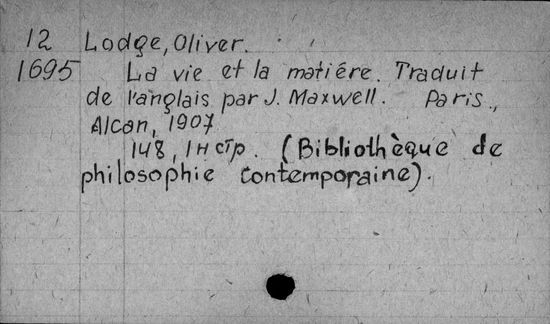 12 Lodge, Oliver.
1695 La vie et la matiére. Traduit
de l'anglais par J. Maxwell. Paris.,
Alcan, 1907
148, 1 н стр. (Bibliothèque de
philosophie contemporaine).